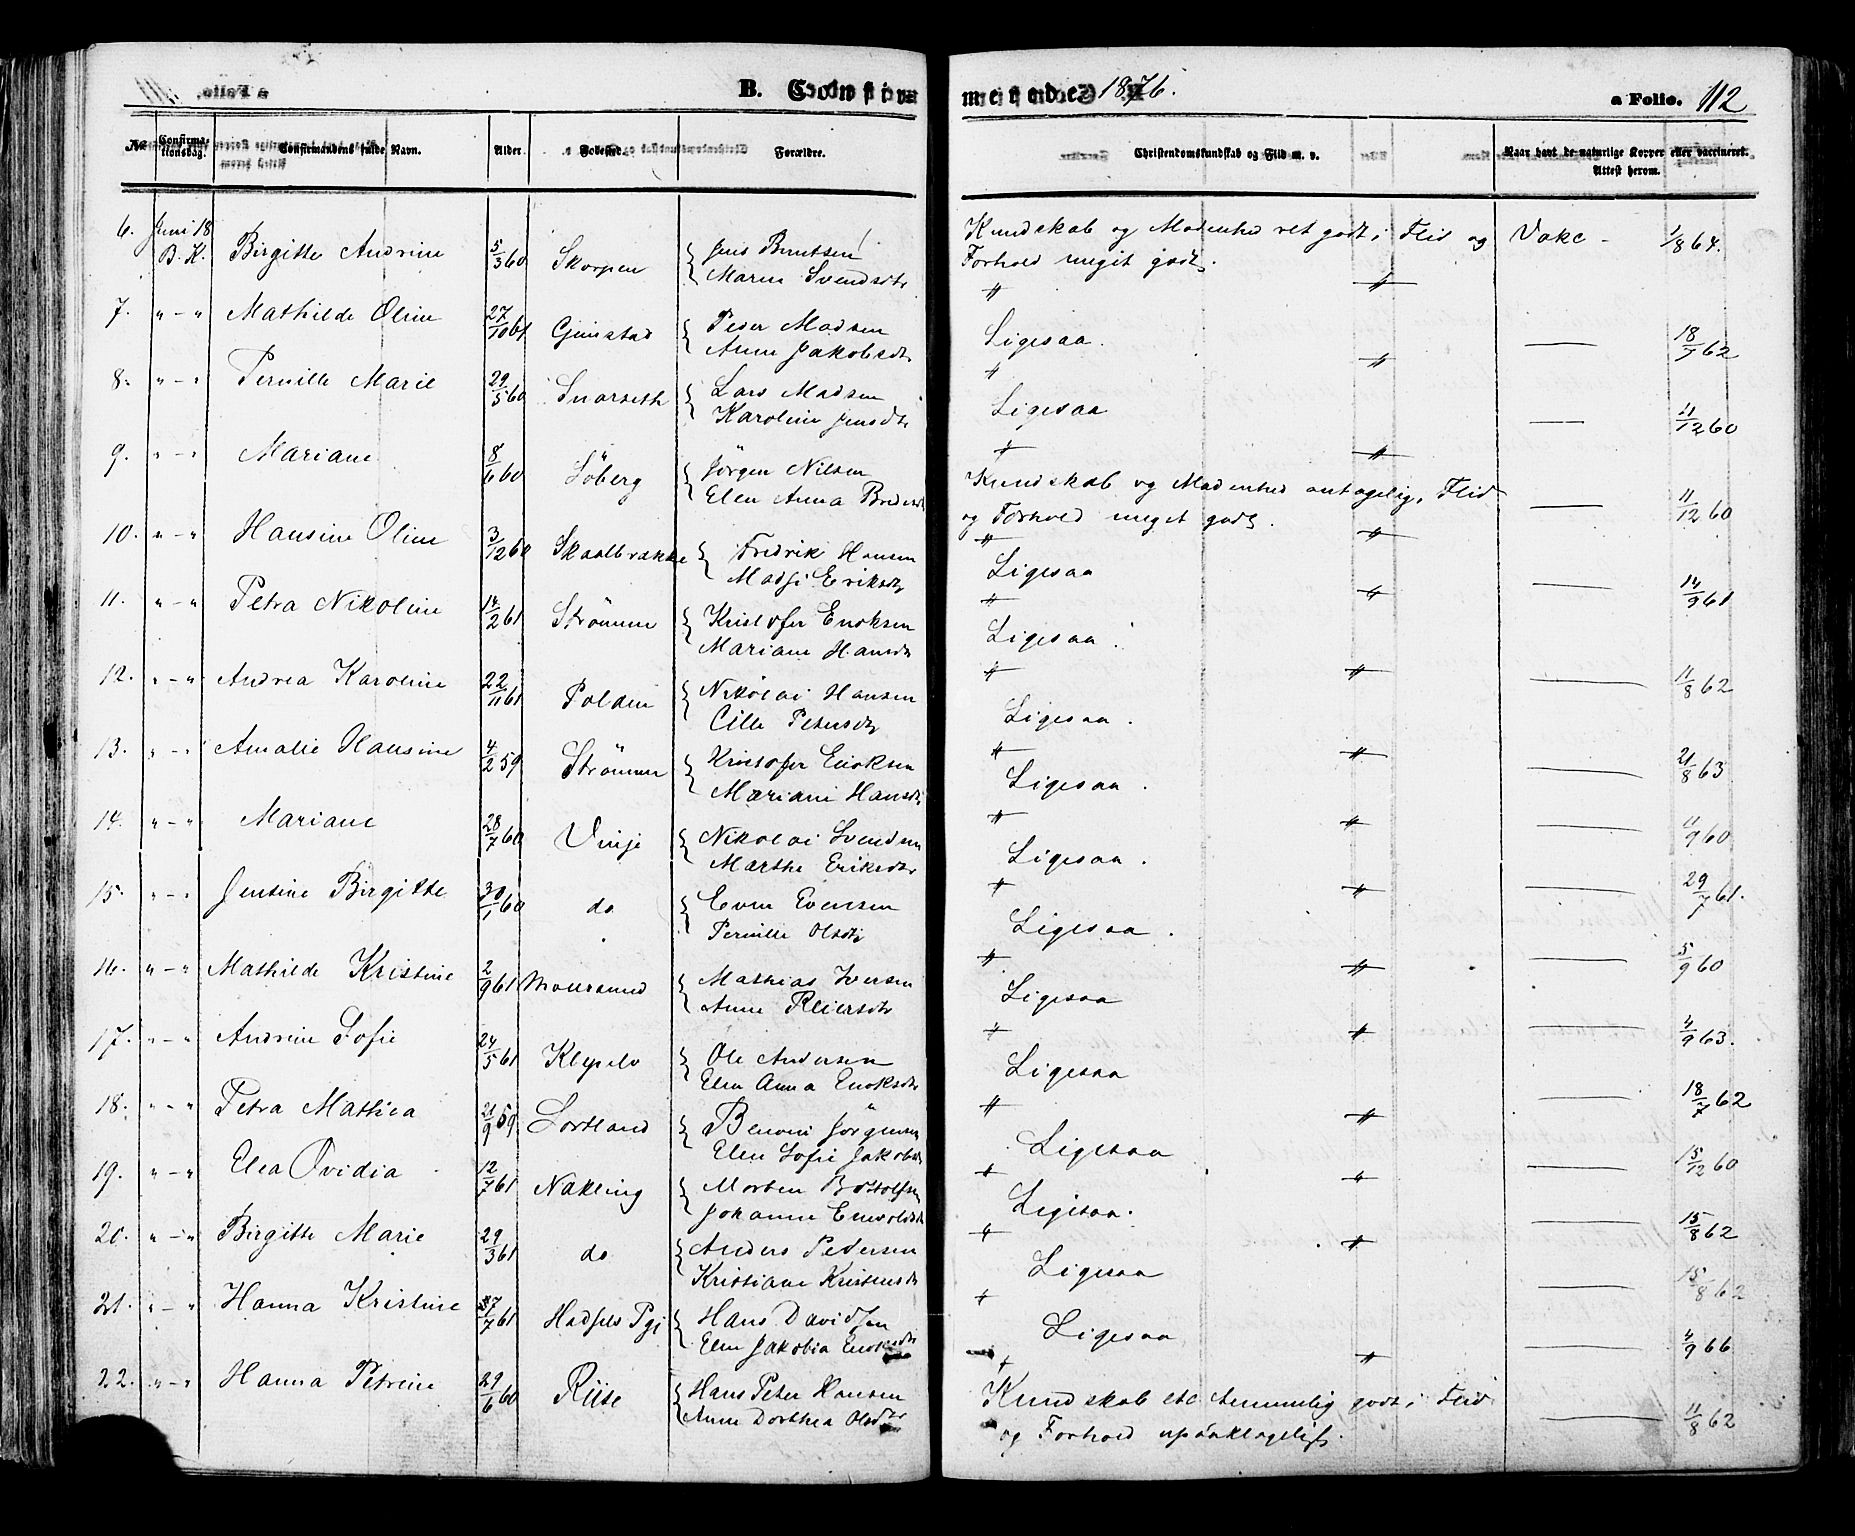 B. Confirmerede 1876.
a Folio. 112
No. Confirmationsdag. Confirmandens fulde Navn. Alder. Fødested. Forældre. Christendomskundskab og Flid m. v. Naar havt de naturlige Kopper eller vaccineret. Attest herom.
6. Juni 18 B. K. Birgitte Andrine 5/3 60 Skorpen { Jens Berntsen
Maren Svendsdtr
Kundskab og Modenhed ret godt, Flid og Vakc - 1/8 64.
Forhold meget godt.
7. " - " Mathilde Oline 27/10 61 Gimstad { Peder Madsen
Anne Jakobsdtr
Ligesaa. — 18/7 62
8. " - " Pernille Marie 29/5 60 Snarseth { Lars Madsen
Karoline Jensdtr
Ligesaa — 11/12 60
9. " - " Mariane 8/6 60 Söberg { Jörgen Nilsen
Elen Anna
Kundskab og Modenhed antagelig, Flid — 11/12 60
og Forhold meget godt.
10. " - " Hansine Oline 3/12 60 Skaalbrække { Fredrik Hansen
Eriksdtr
Ligesaa — 14/9 61
11. " - " Petra Nikoline 14/2 61 Strömme { Kristofer Enoksen
Mariane Hansdtr
Ligesaa — 11/8 62
12. " - " Andrea Karoline 22/11 61 Polden { Nikolai Hansen
Cille Petersdtr
Ligesaa. — 21/8 63
13. " - " Amalie Hansine 4/2 59 Strömme { Kristofer Enoksen
Mariane Hansdtr
Ligesaa. — 11/9 60
14. " - " Mariane 28/7 60 Vinje { Nikolai Svendsen
Marthe Eriksdtr
Ligesaa. — 29/7 61.
15. " - " Jensine Birgitte 30/1 60 do { Even Evensen
Pernille Olsdtr
Ligesaa. — 5/9 60
16. " - " Mathilde Kristine 2/9 61 Maursund { Mathias Iversen
Anne Reiersdtr
Ligesaa — 4/9 63.
17. " - " Andrine Sofie 24/5 61 Klepelv { Ole Andersen
Elen Anna Enoksdtr
Ligesaa — 18/7 62
18. " - " Petra Mathea 21/9 59 Sortland { Benoni Jörgensen
Elen Sofie Jakobsdtr
Ligesaa — 15/12 60
19. " - " Elea Ovidia 12/7 61 Nakling { Morten Bottolfsen
Johanne Enevoldsdtr
Ligesaa. — 15/8 62
20. " - " Birgitte Marie 29/3 61 do { Anders Pedersen
Kristiane Kristensdtr
Ligesaa — 15/8 62
21. " - " Hanna Kristine 7/7 61 Hadsels Pgj { Hans Davidsen
Elen Jakobia
Ligesaa — 4/9 66
22. " - " Hanna Petrine 29/6 60 Riise { Hans Peter Hansen
Anne Dorthea Olsdtr
Kundskab etc temmelig godt, Flid — 11/8 62
og Forhold upaaklageligt.